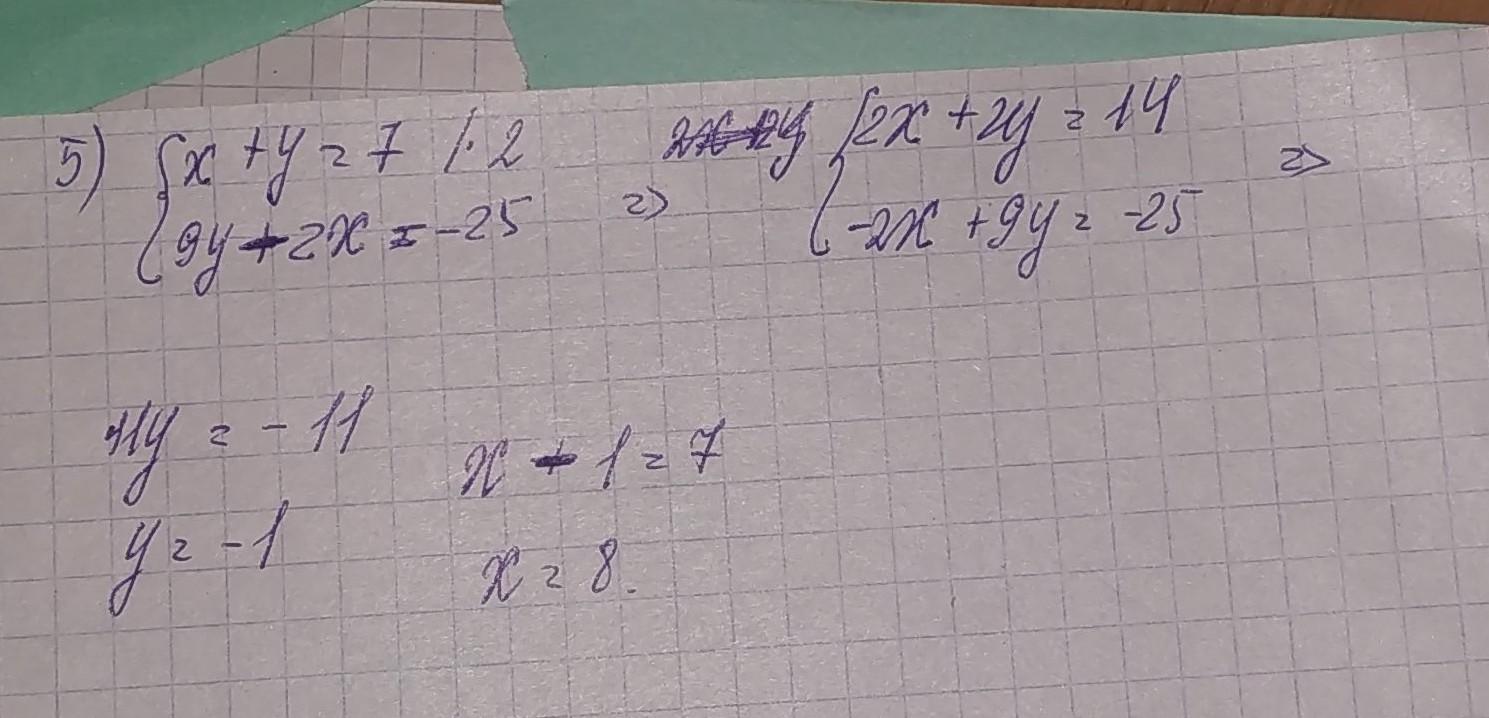 5) { x + y = 7 | · 2
{ 9y - 2x = -25 => { 2x + 2y = 14
{ -2x + 9y = -25 =>
11y = - 11
y = - 1
x - 1 = 7
x = 8.